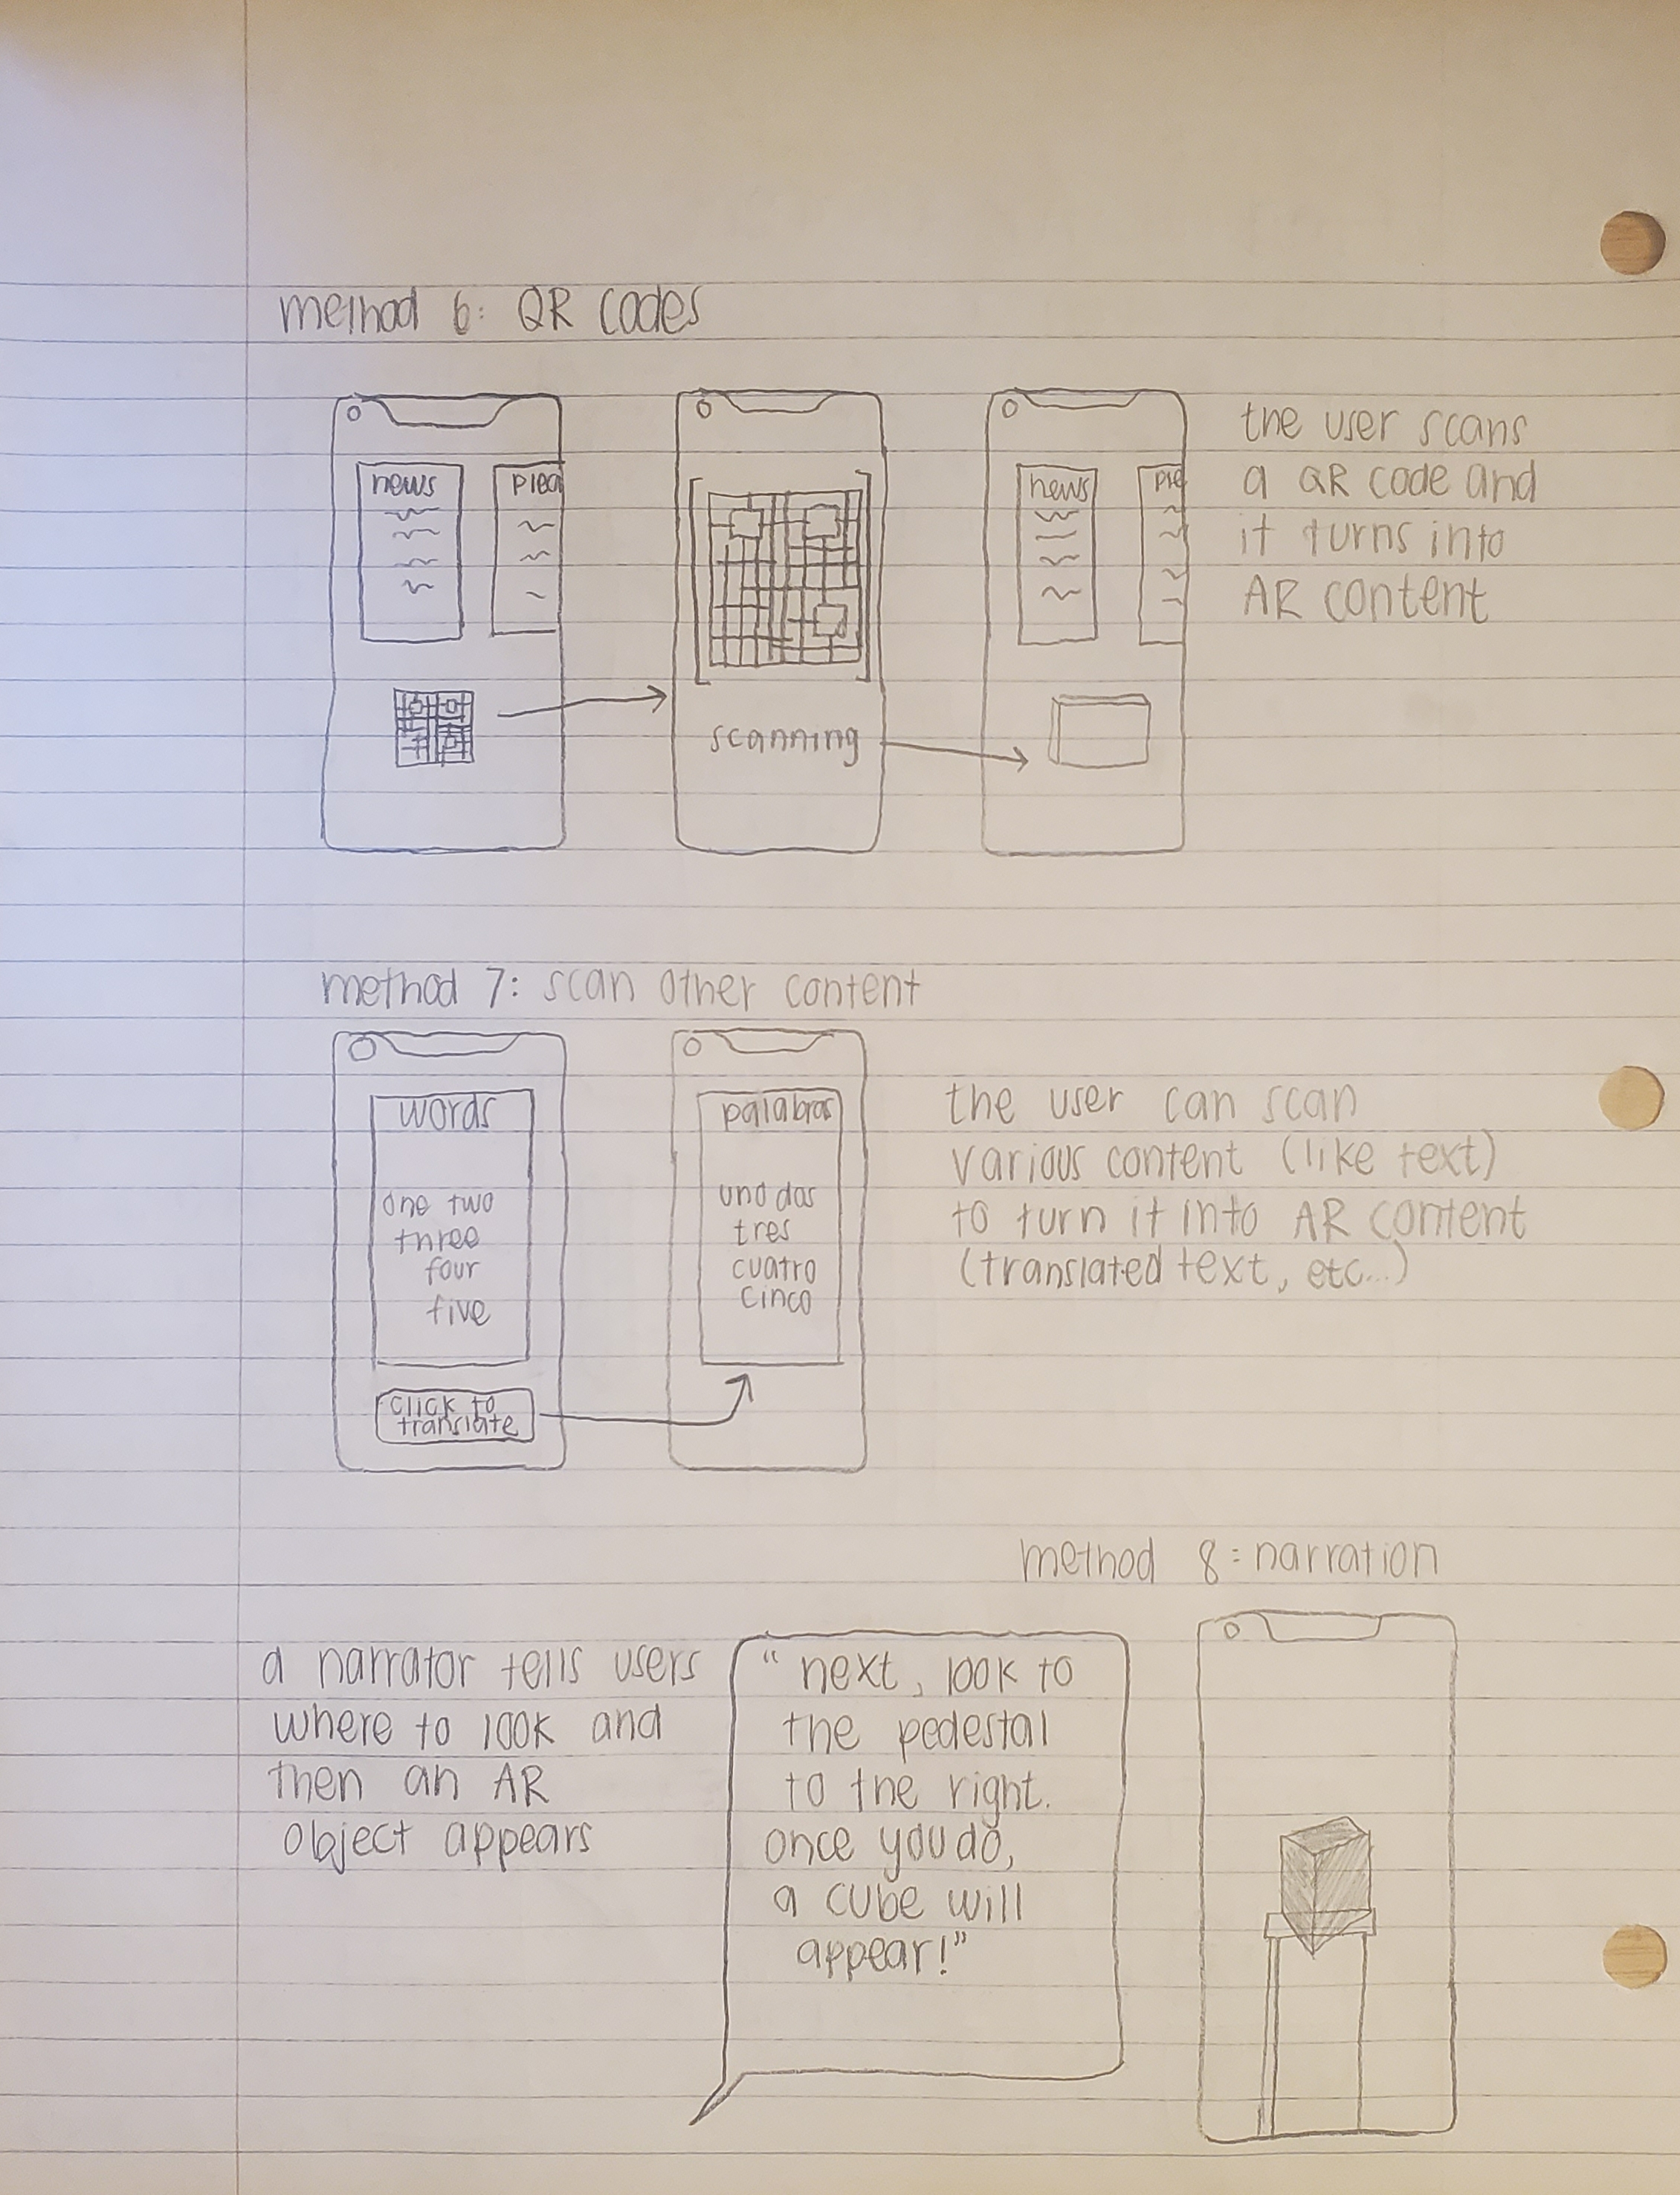 method 6: QR codes
news
plea
scanning
news
ple
the user scans
a QR code and
it turns into
AR content
method 7: scan other content
words
one two
three
four
five
click to
translate
palabras
uno dos
tres
cuatro
cinco
the user can scan
various content (like text)
to turn it into AR content
(translated text, etc...)
method 8: narration
a narrator tells users
where to look and
then an AR
object appears
"next, look to
the pedestal
to the right.
once you do,
a cube will
appear!"